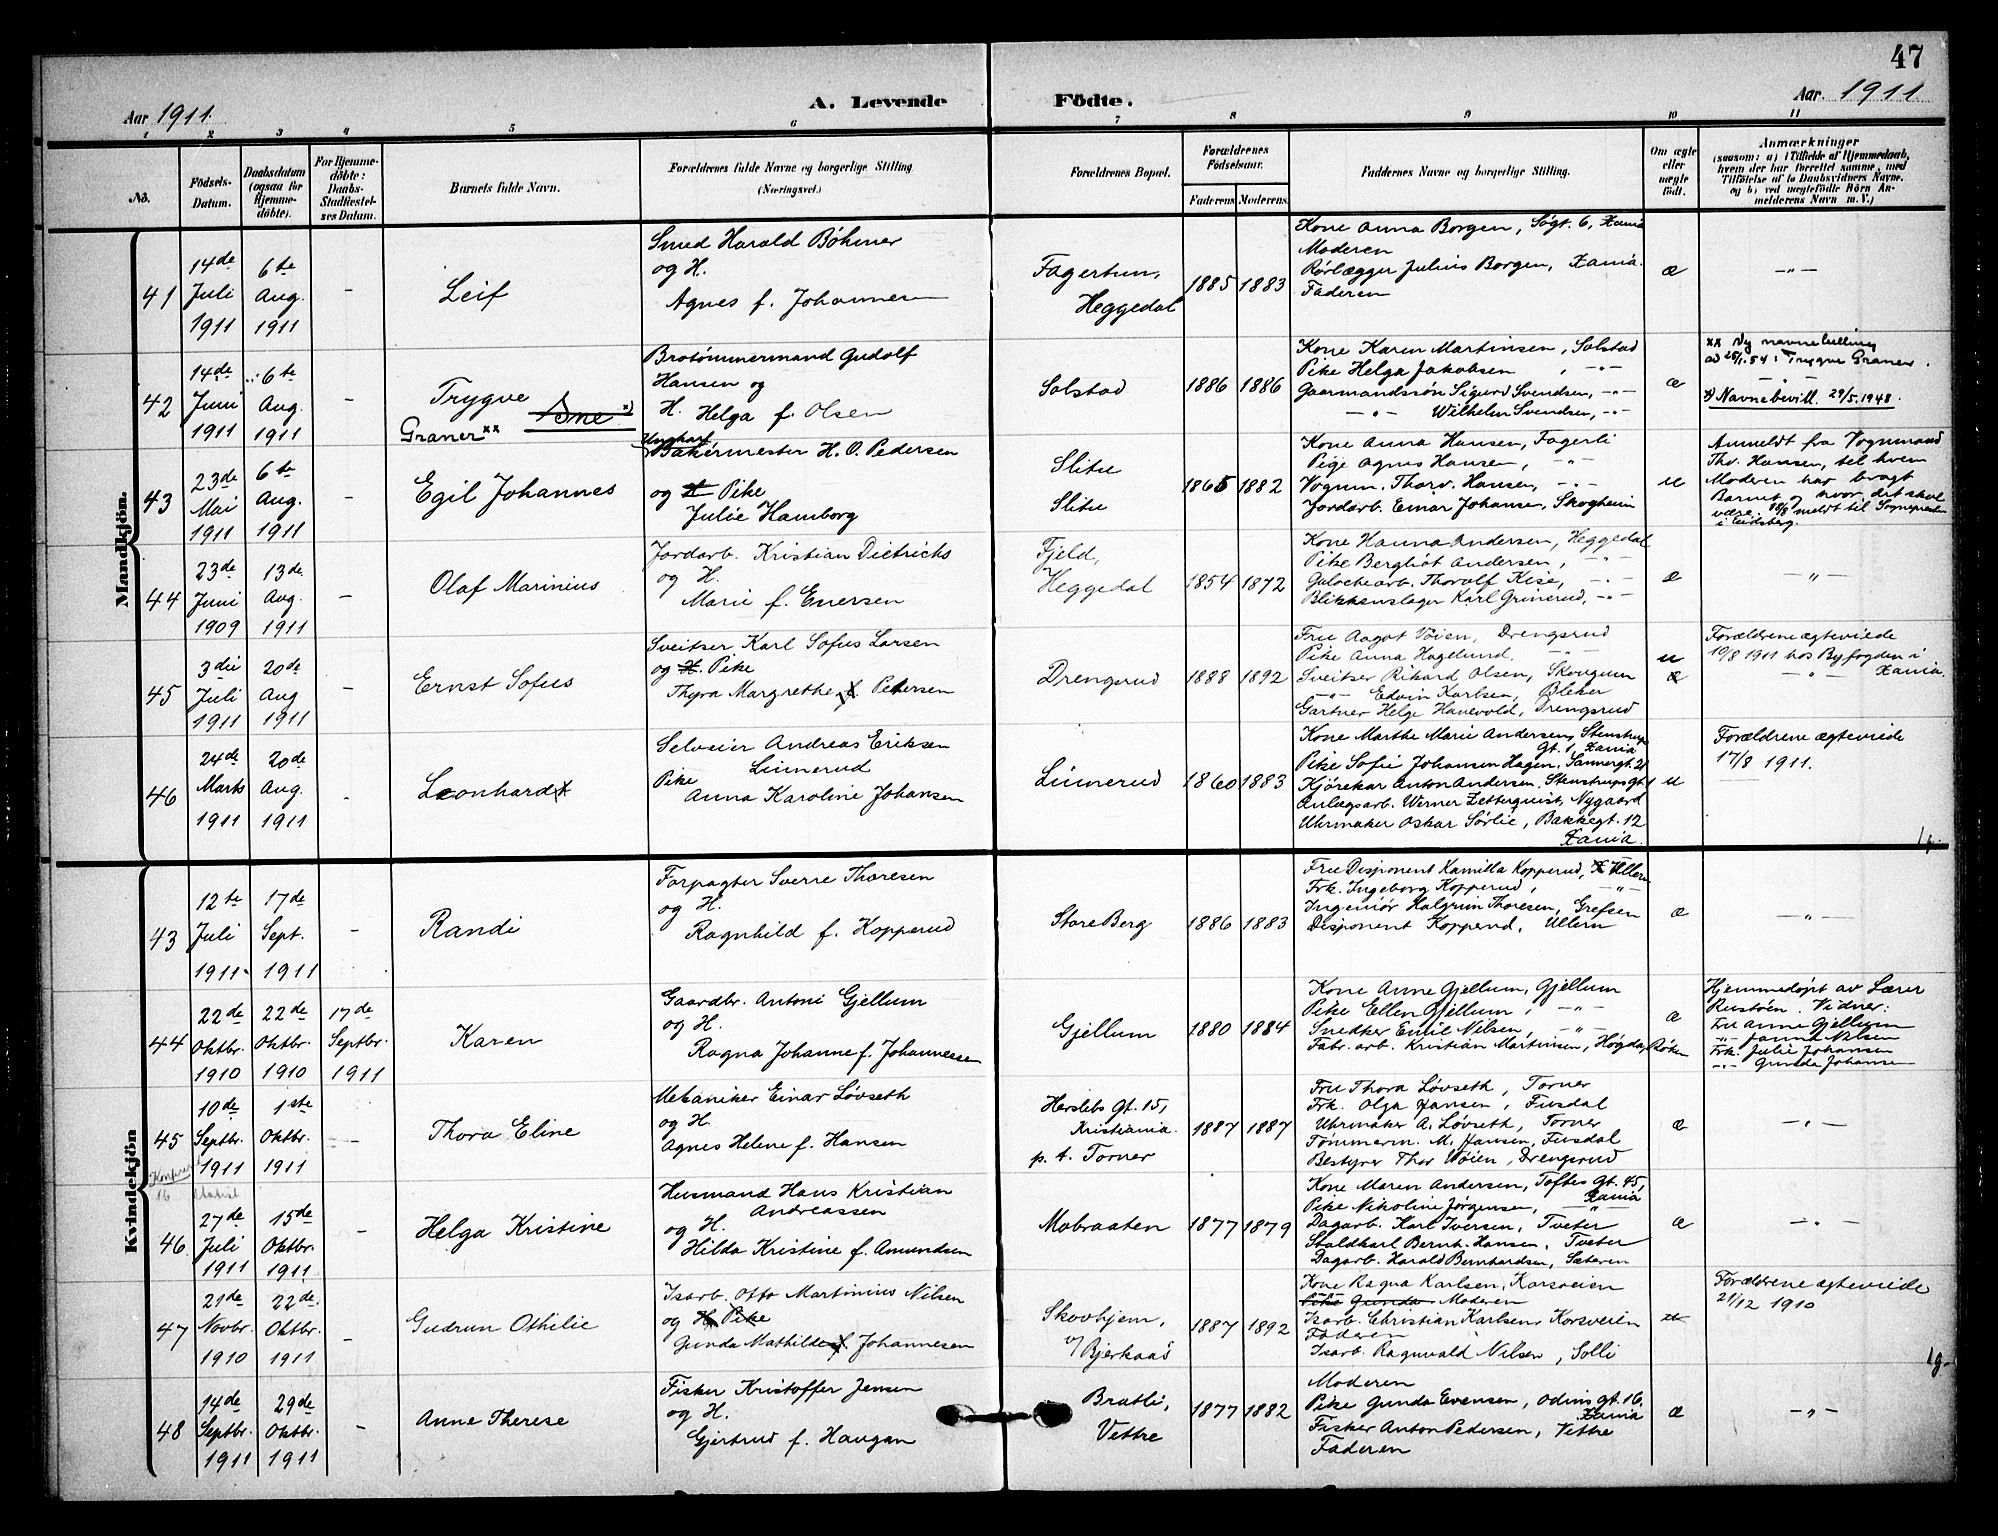 47
Aar 1911.
A. Levende
Födte.
Aar. 1911
1 2 3 4 5 6 7 8 9 10 11
No.
Födsels-
Datum.
Daabsdatum
(ogsaa for
Hjemme-
döbte).
For Hjemme-
döbte:
Daabs-
Stadfæstel-
ses Datum.
Barnets fulde Navn.
Forældrenes fulde Navne og borgerlige Stilling
(Næringsvei.)
Forældrenes Bopæl.
Forældrenes
Födselsaar.
Faderens Moderens
Faddernes Navne og borgerlige Stilling.
Om ægte
eller
uægte
födt.
Anmærkninger
(saasom: a) i Tilfælde af Hjemmedaab,
hvem der har forrettet samme, med
Tilföielse af to Daabsvidners Navne,
og b) ved uægtefödte Börn An-
melderens Navn m. V.)
Mandkjön.
41
14de
Juli
1911
6te
Aug.
1911
-
Leif
Smed Harald Böhmer
og H.
Agnes f. Johannesen
Fagertun,
Heggedal
1885 1883
Kone Anna Borgen, Søgt. 6, Xania
Moderen
Rørlægger Julius Borgen, Xania.
Faderen
æ
-"-
42
14de
Juni
1911
6te
Aug.
1911
-
Trygve
Graner xx Arne x)
Brotömmermand Gudolf
Hansen og
H. Helga f. Olsen
Solstad
1886 1886
Kone Karen Martinsen, Solstad
Pike Helga Jakobsen, -"-
Gaarmandssön Sigurd Svendsen, -"-
-"- Wilhelm Svendsen, -"-
æ
xx Ny navnebevilling
ad 25/1.54: Trygve Graner.
-"-
x) Navnebevill. 29/5.1948.
43
23de
Mai
1911
6te
Aug.
1911
-
Egil Johannes
Ungkarl
Bakermester H. O. Pedersen
og H Pike
Julie Hamborg
Slitu
Slitu
1865 1882
Kone Anna Hansen, Fagerli
Pige Agnes Hansen, -"-
Vognm. Thorv. Hansen, -"-
Jordarb. Einar Johansen, Skogheim
u
Anmeldt fra Vognmand
Thv. Hansen, til hvem
Moderen har bragt
Barnet og hvor det skal
være. 10/8 meldt til Sognepresten
i Eidsberg.
44
23de
Juni
1909
13de
Aug.
1911
-
Olaf Marinius
Jordarb. Kristian Dietrichs
og H.
Marie f. Enersen
Fjeld,
Heggedal
1854 1872
Kone Hanna Andersen, Heggedal
Pike Bergliot Andersen, -"-
Galochearb. Thorolf Kise, -"-
Blikkenslager Karl Grinerud, -"-
æ
-"-
45
3die
Juli
1911
20de
Aug
1911
-
Ernst Sofus
Sveitser Karl Sofus Larsen
og H Pike
Thyra Margrethe f. Petersen
Drengsrud
1888 1892
Fru Aagot Vøien, Drengsrud
Pike Anna Hagelund. -"-
Sveitser Rikard Olsen, Skovgum
-"- Edvin Karlsen, Bleker
Gartner Helge Hanevold, Drengsrud
u
æ
Forældrene ægteviede
19/8 1911 hos Byfogden i
-"- Xania.
46
24de
Marts
1911
20de
Aug.
1911
-
Leonhard
Selveier Andreas Eriksen
Linnerud
Pike
Anna Karoline Johansen
Linnerud
1860 1883
Kone Marthe Marie Andersen, Stenstrups
Gt. 1, Xania
Pike Sofie Johansen Hagen, Sannergt. 21
Kjörekar Anton Andersen, Stenstrupsgt. 1
Anlægsarb. Werner Zetterquist, Nygaard
Uhrmaker Oskar Sørlie, Bakkegt. 12
Xania.
u
Forældrene ægteviede
17/8 1911.
Kvindekjön
43
12te
Juli
1911
17de
Sept.
1911
-
Randi
Forpagter Sverre Thoresen
og H.
Ragnhild f. Kopperud
Store Berg
1886 1883
Fru Disponent Kamilla Kopperud, Ullern
Frk. Ingeborg Kopperud, -"-
Ingeniör Halgrim Thoresen, Grefsen
Disponent Kopperud, Ullern
æ
-"-
44
22de
Oktbr.
1910
22de
Oktbr.
1910
17de
Septbr.
1911
Karen
Gaardbr. Antoni Gjellum
og H.
Ragna Johanne f. Johannessen
Gjellum
1880 1884
Kone Anne Gjellum, Gjellum
Pike Ellen Gjellum, -"-
Snedker Emil Nilsen, -"-
Fabr. arb. Kristian Martinsen, Høgda, Røken
æ
Hjemmedøpt av Lærer
Rustöen. Vidner:
Fru Anne Gjellum
-"- Janna Nilsen
Frk. Julie Johansen
-"- Gunda Johansen
45
10de
Septbr.
1911
1ste
Oktbr.
1911
-
Thora Eline
Mekaniker Einar Lövseth
og H.
Agnes Helene f. Hansen
Herslebs Gt. 15,
Kristiania.
p. t. Torner
1887 1887
Fru Thora Lövseth, Torner
Frk. Olga Jansen, Fusdal
Uhrmaker A. Lövseth, Torner
Tömmerm. M. Jansen, Fusdal
Bestyrer Thor Vøien, Drengsrud
æ
-"-
46
27de
Juli
1911
15de
Oktbr.
1911
-
Helga Kristine
Husmand Hans Kristian
Andreassen
og H.
Hilda Kristine f. Amundsen
Mobraaten
1877 1879
Kone Maren Andersen, Toftes Gt. 45,
Xania
Pike Nikoline Jørgensen, -"-
Dagarb. Karl Iversen, Tveter
Staldkarl Bernt Hansen, Tveter
Dagarb. Harald Bernhardsen, Sæteren
æ
-"-
47
21de
Novbr.
1910
22de.
Oktbr.
1911
-
Gudrun Othilie
Isarb. Otto Martinius Nilsen
og H. Pike
Gunda Mathilde f. Johannesen
Skovhjem,
v/ Bjerkaas
1887 1892
Kone Ragna Karlsen, Korsveien
Pike Gunda Moderen
Isarb. Christian Karlsen, Korsveien
Faderen
Isarb. Ragnvald Nilsen, Solli
Forældrene ægteviede
21/12 1910
48
14de
Septbr.
1911
29de
Oktbr.
1911
-
Anne Therese
Fisker Kristoffer Jensen
og H.
Gjertrud f. Haugan
Bratli,
Vettre
1877 1882
Moderen
Pike Gunda Evensen, Odins gt. 16,
Xania
Fisker Anton Pedersen, Vettre
Faderen
æ
-"-